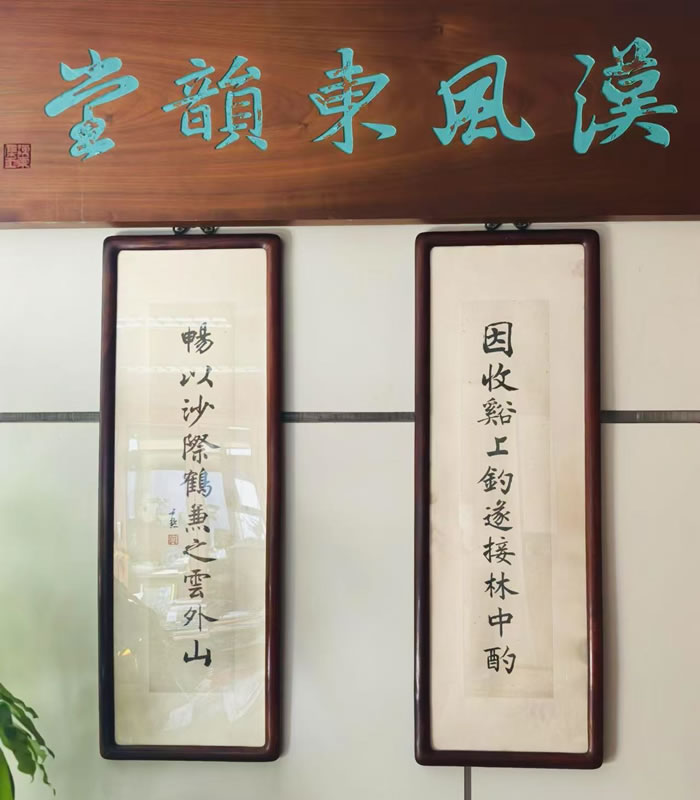 漢風東韻堂
因收谿上釣遂接林中酌
暢以沙際鶴兼之雲外山